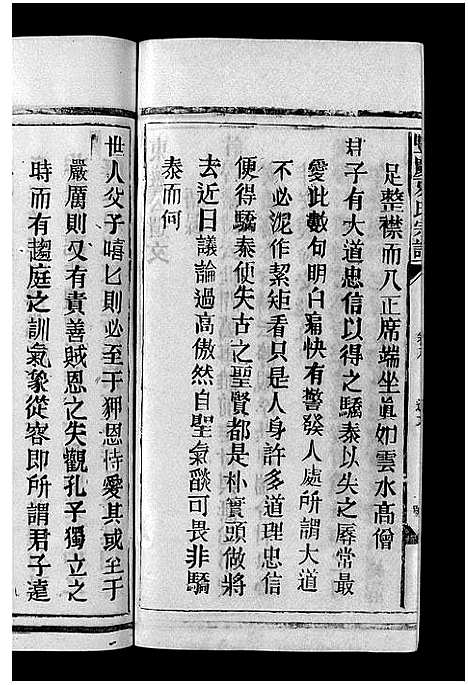 足整襟而入正席端坐眞如雲水高僧
君子有大道忠信以得之驕泰以失之辱常最
愛此數句明白痛快有警發人處所謂大道
不必泥作絜矩看只是人身許多道理忠信
便得驕泰便失古之聖賢都是朴實頭做將
去近日議論過高傲然自聖氣燄可畏非驕
泰而何
世人父子嘻匕則必至于狎恩恃愛其或至于
嚴厲則又有責善賊恩之失觀孔子獨立之
時而有趨庭之訓氣象從容卽所謂君子遠